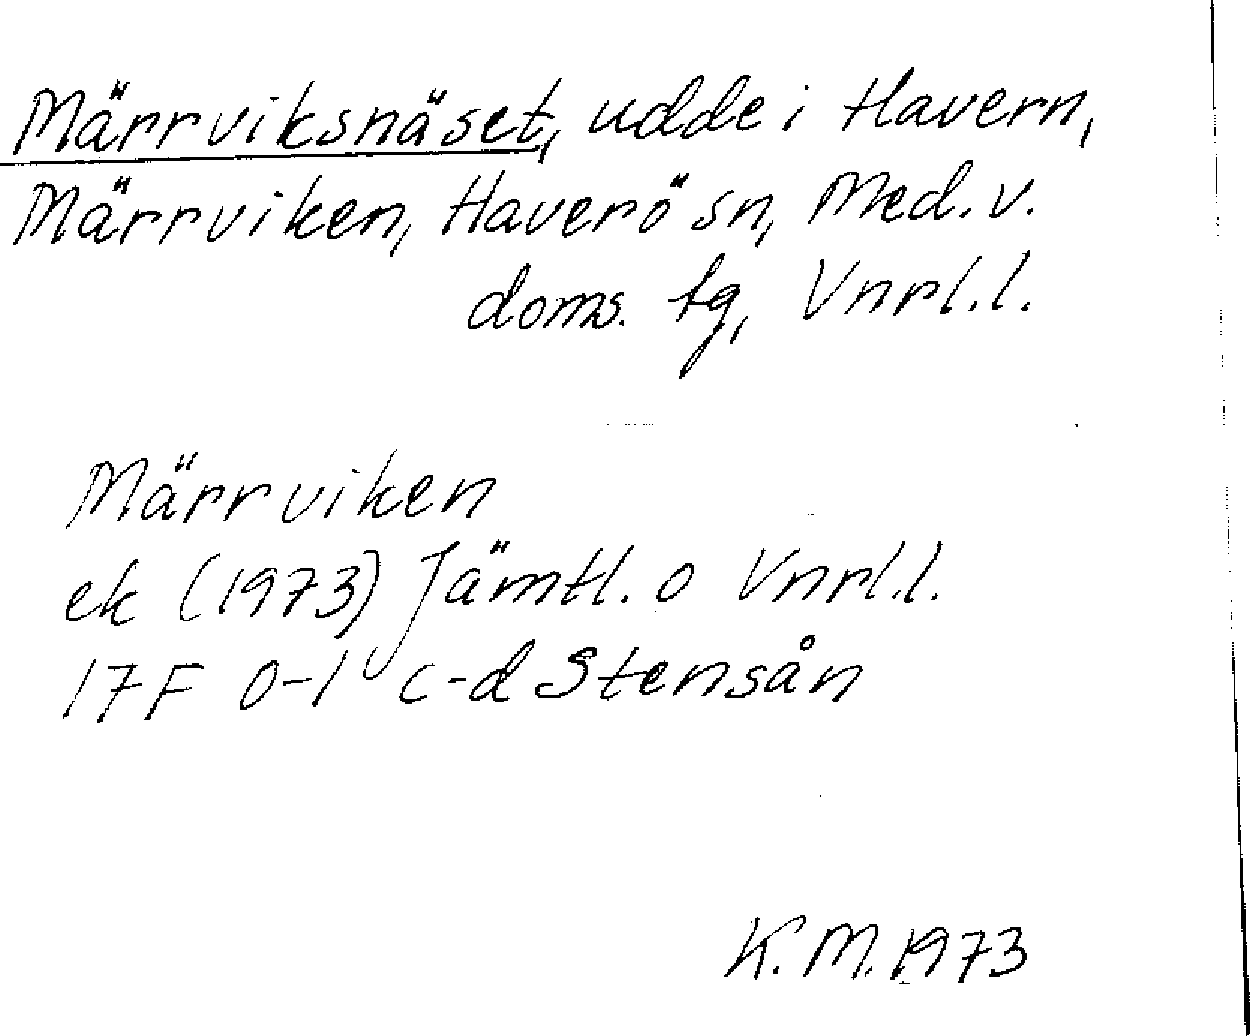 Märrviksnäset, udde i Havern,
Märrviken, Haverö sn, Med. v.
doms. tg, Vnrl. l.
Märrviken
ek (1973) Jämtl. o Vnrl. l.
17F 0-1 c-d Stensån
K. M. 1973